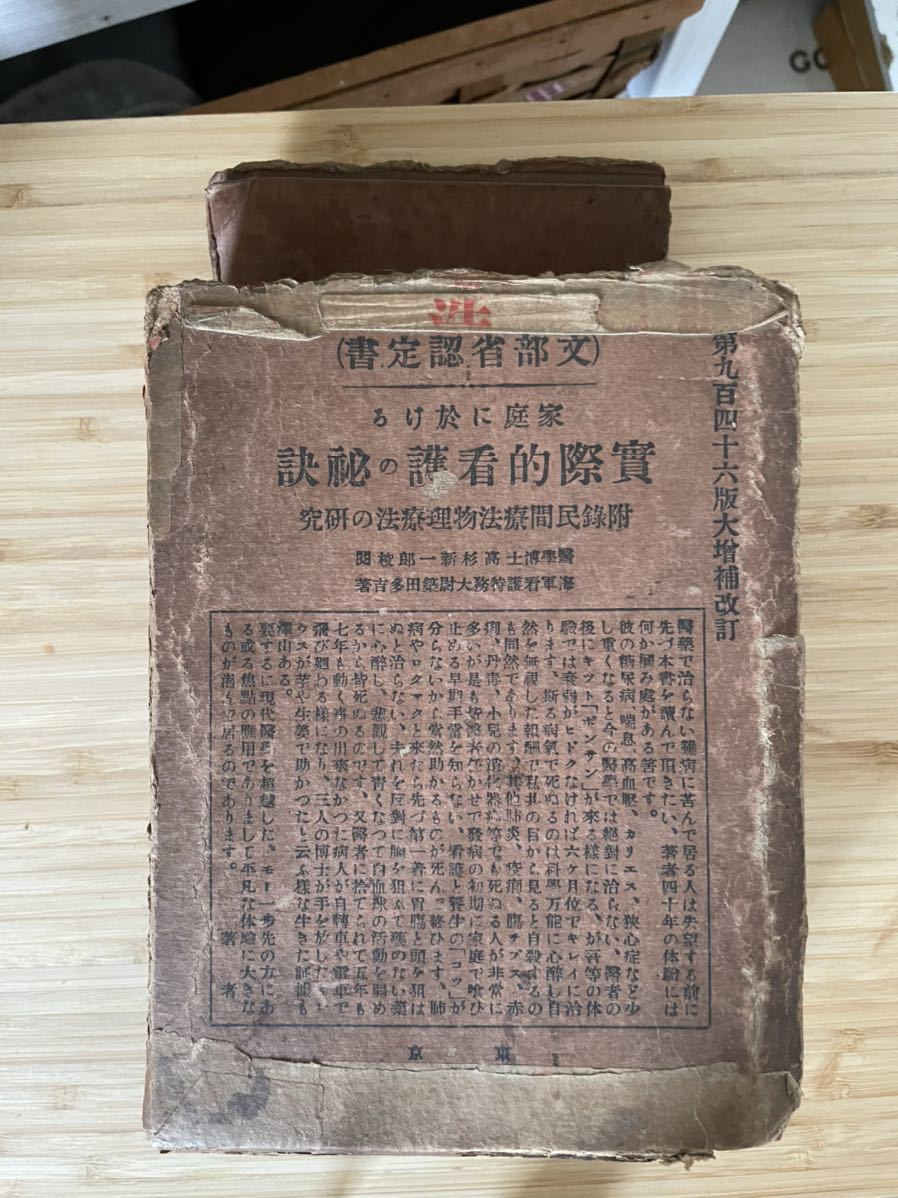 第九百四十六版大增補改訂
(文部省認定書)
家庭に於ける
實際的看護の祕訣
附錄民間療法物理療法の研究
醫學博士高杉新一郎校閱
海軍看護特務大尉築田多吉著
醫藥で治らない難病に苦んで居る人は失望する前に
先づ本書を讀んで頂きたい、著者四十年の体驗には
何か摑み處がある筈です。
彼の糖尿病、喘息、高血壓、カリエス、狹心症など少
し重くなると今の醫學では絕對に治らない、醫者の
後にキット「ボンサン」が來る樣になる、が吾等の体
驗では衰弱がヒドクなければ六ヶ月位でキレイに治
ります、斯る病氣で死ぬるのは科學万能に心醉し自
然を無視した報酬で私共の目から見ると自殺するの
も同然であります、其他肺炎、疫痢、膓チブス、赤
痢、丹毒、小兒の消化器病等でも死ぬる人が非常に
多いが是も皆醫者任かせで發病の初期に家庭で喰ひ
止める早期手當を知らない、看護と養生の「コツ」が
分らないから當然助かるものが死んで終ひます、肺
病やロクマクと來たら先づ第一着に胃膓と頭を狙は
ぬと治らない、夫れを反對に胸を狙ふて効のない藥
に心醉し、悲觀して靑くなつて白血球の活動を弱め
るから皆死ぬるのです、又醫者に捨てられて五年も
七年も動く事の出來なかつた病人が自轉車や電車で
飛び廻わる樣になり、三人の博士が手を放した
ウスが芋や生姜で助かつたと云ふ樣な生きた証據も
澤山ある。
要するに現代醫學を超越した、モー一步先の方にあ
る或る焦點の應用でありまして平凡な体驗に大きな
ものが潛んで居るのであります。 著者
東京